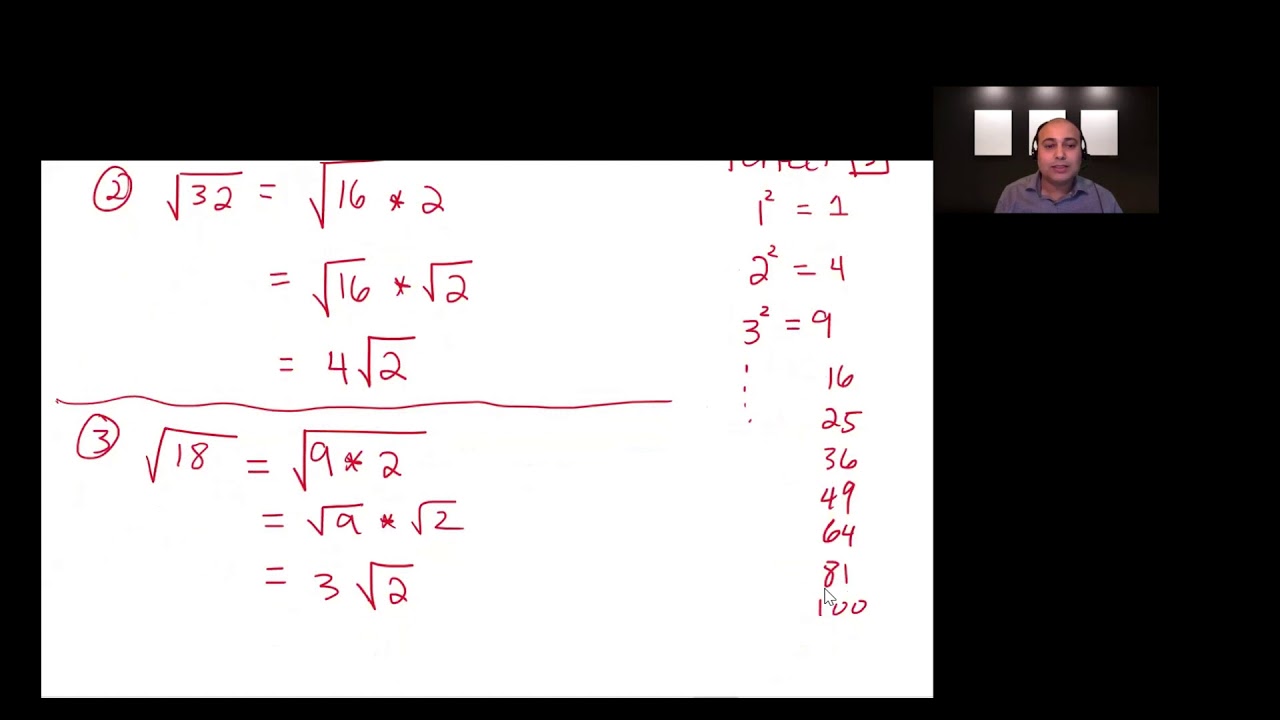 ② √32 = √16 * 2
= √16 * √2
= 4√2
③ √18 = √9 * 2
= √9 * √2
= 3√2
1² = 1
2² = 4
3² = 9
16
25
36
49
64
81
100